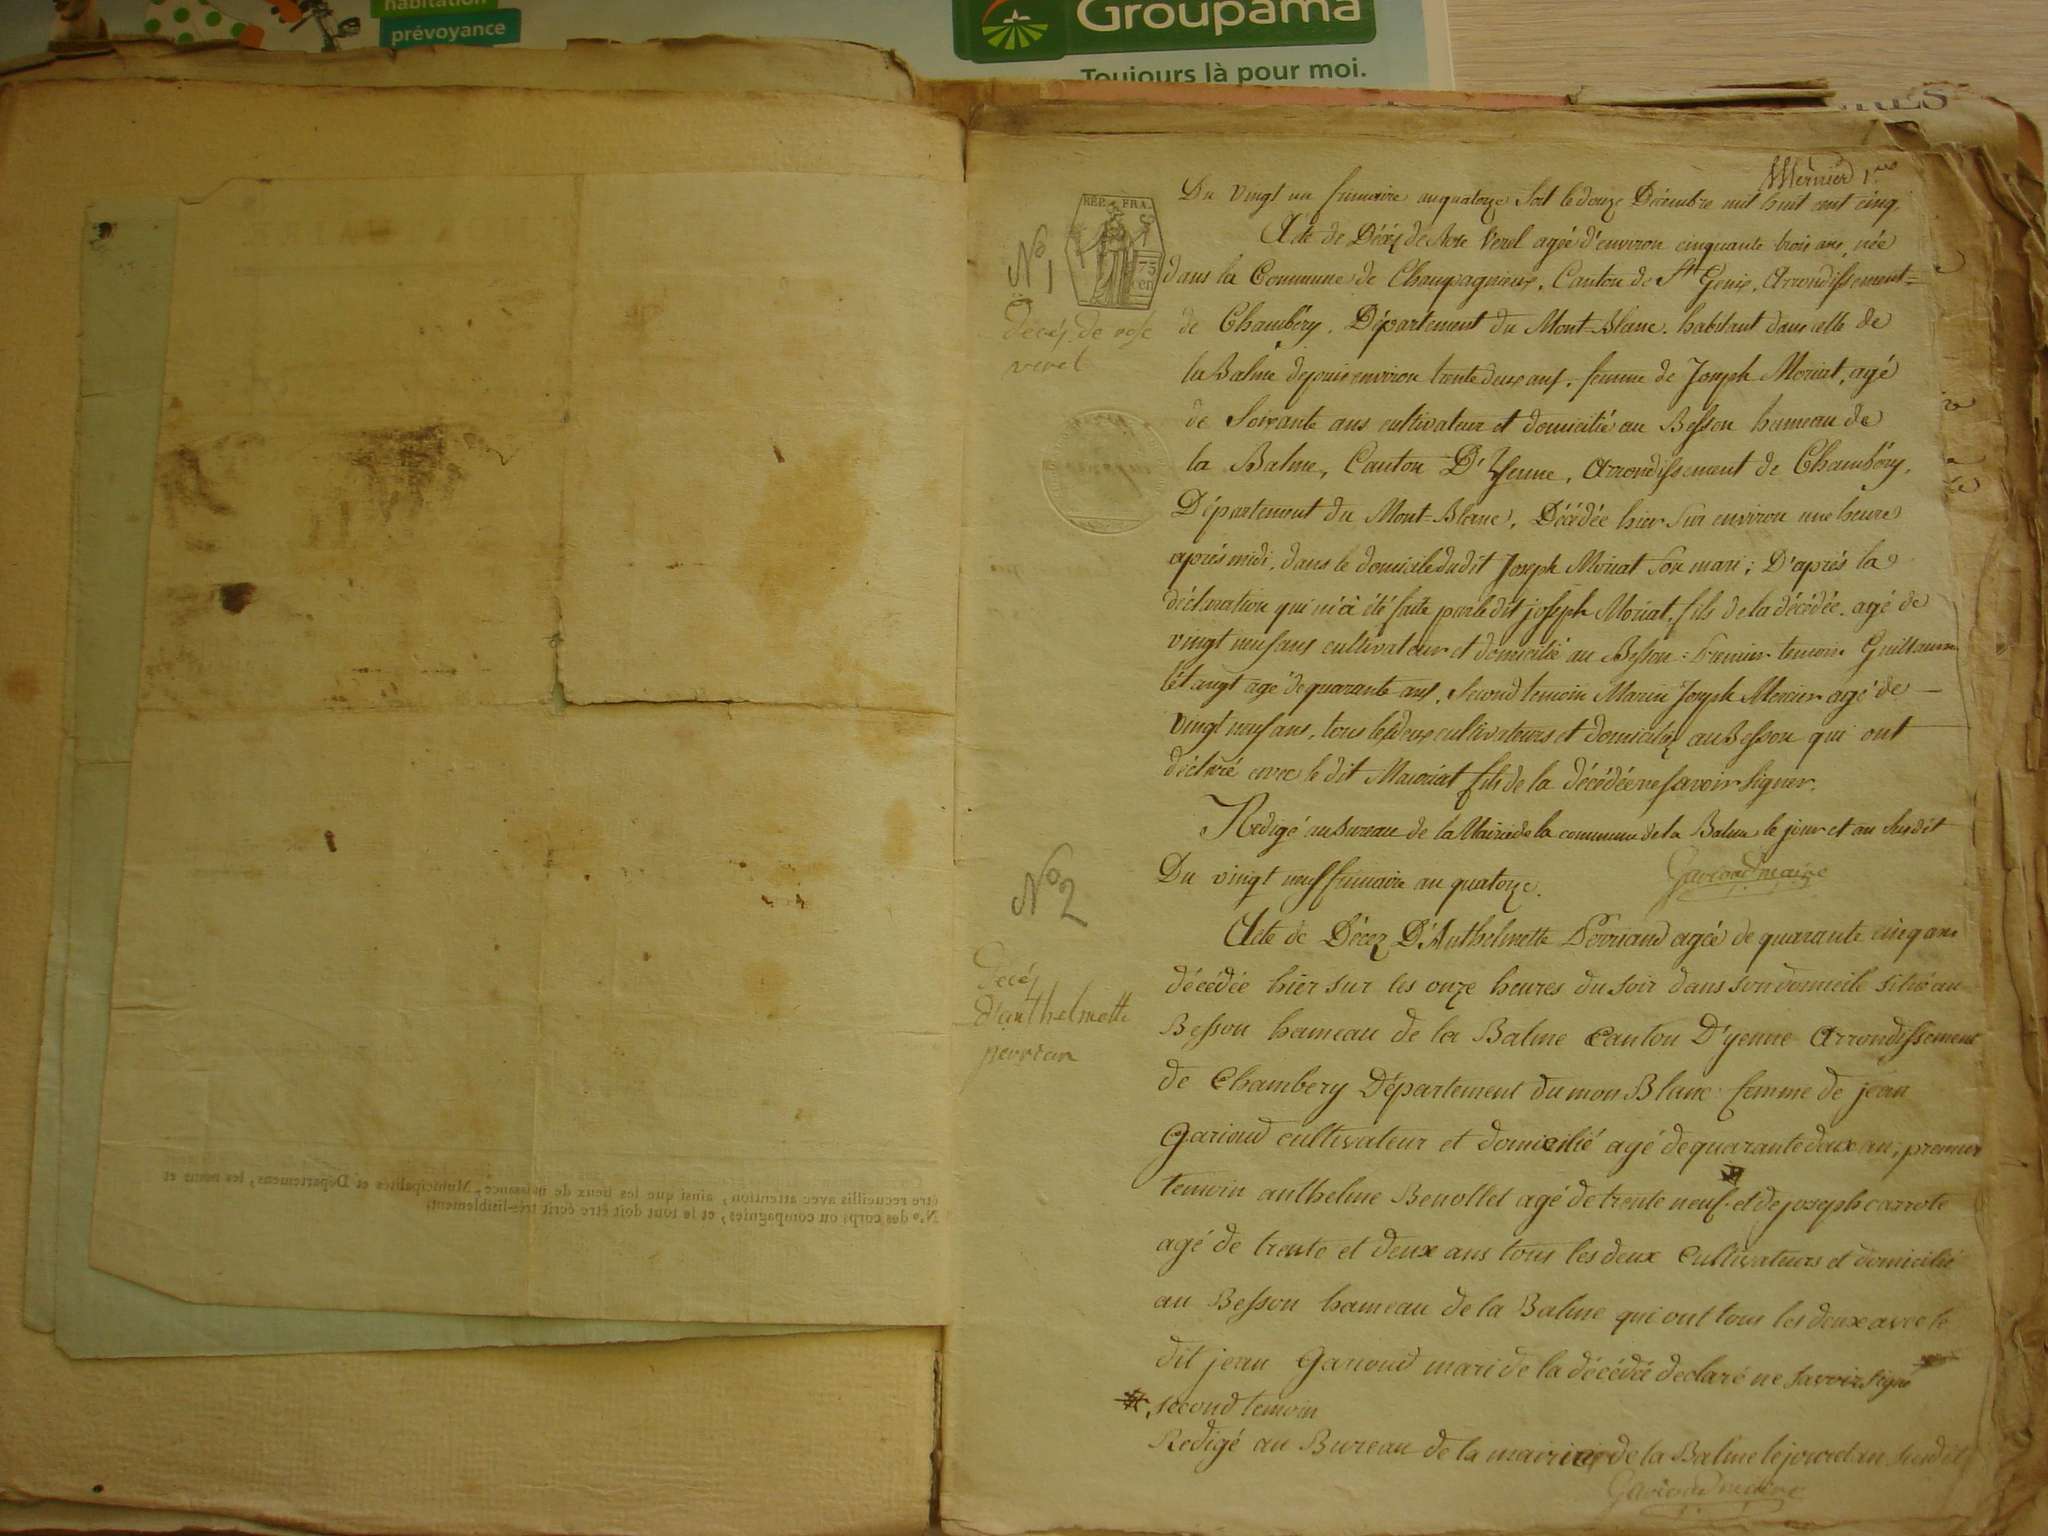 habitation
prévoyance
Groupama
Toujours là pour moi.
Mernier 1.er
REP. FRA.
75
cen
No 1
décéz de rose
verel
Du vingt un frimaire an quatorze Soit le douze Décembre mil huit cent cinq.
Acte de Décéz de Rose Verel agée d'environ cinquante trois ans, née
dans la Commune de Champagnieux, Canton de St Genix, Arrondissement=
de Chambéry. Département du Mont-Blanc. habitant dans celle de
la Balme depuis environ trente deux ans, femme de Joseph Moriat, agé
de Soixante ans cultivateur et domicilié au Besson hameau de
la Balme, Canton D'Yenne, Arrondissement de Chambéry,
Département du Mont=Blanc, Décédée hier Sur environ une heure
après midi, dans le domicile dudit Joseph Moriat Son mari; D'après la
déclaration qui m'a été faite par le dit joseph Moriat, fils de la décédée. agé de
vingt neuf ans cultivateur et domicilié au Besson: Premier temoin Guillaume
agé de quarante ans, Second temoin Marin Joseph Mercier agé de
vingt neuf ans, tous les deux cultivateurs et domiciliéz au Besson qui ont
déclaré avec le dit Mauriat fils de la décédée ne savoir signer.
Redigé au Bureau de la Mairie de la commune de la Balme le jour et an Susdit
Garioud maire
Du vingt neuf frimaire an quatorze.
No 2
Decéz
d'anthelmette
perrian
Acte de Décez D'Anthelmette Perriand agée de quarante cinq ans
décédée hier sur les onze heures du soir dans son domicile situé au
Besson hameau de la Balme Canton D'yenne Arrondissement
de Chambery Département du mon Blanc femme de jean
Garioud cultivateur et domicilié agé de quarante deux an; premier
temoin anthelme Benollet agé de trente neuf et de joseph carrote
agé de trente et deux ans tous les deux Cultivateurs et domicilié
au Besson hameau de la Balme qui ont tous les deux avec le
dit jean Garioud mari de la décédée declaré ne savoir signé
, second temoin
Redigé au Bureau de la mairie de la Balme le jour et an susdit
Garioud maire
être recueillis avec attention, ainsi que les lieux de naissance, Municipalités et Départemens, les noms et
N.os des corps ou compagnies, et le tout doit être écrit très-lisiblement.